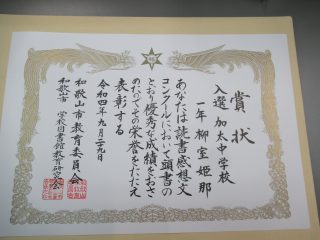 賞状
入選 加太中学校
一年 柳室姫那
あなたは読書感想文
コンクールにおいて頭書の
とおり優秀な成績をおさ
めたのでその栄誉をたたえ
表彰する
令和四年九月二十九日
和歌山市教育委員会
和歌山市 学校図書館教育研究会